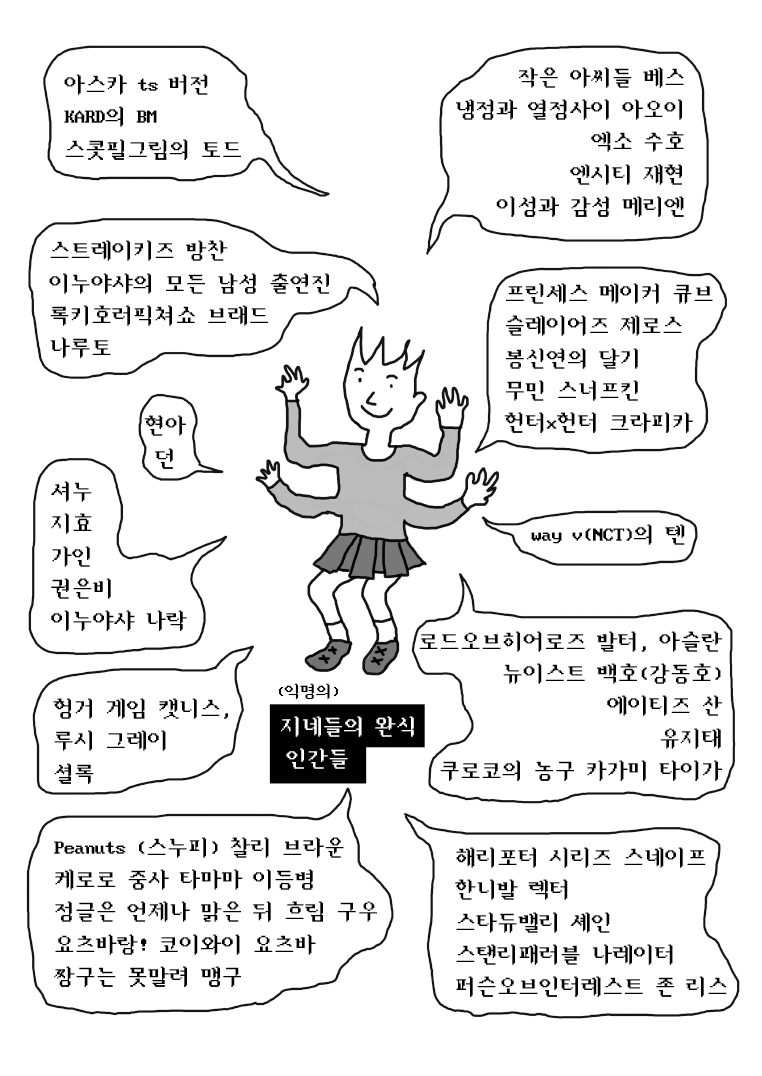 아스카 ts 버전
KARD의 BM
스콧필그림의 토드
작은 아씨들 베스
냉정과 열정사이 아오이
엑소 수호
엔시티 재현
이성과 감성 메리엔
스트레이키즈 방찬
이누야샤의 모든 남성 출연진
록키호러픽쳐쇼 브래드
나루토
프린세스 메이커 큐브
슬레이어즈 제로스
봉신연의 달기
무민 스너프킨
헌터x헌터 크라피카
현아
던
셔누
지효
가인
권은비
이누야샤 나락
way v(NCT)의 텐
로드오브히어로즈 발터, 아슬란
뉴이스트 백호(강동호)
에이티즈 산
유지태
쿠로코의 농구 카가미 타이가
헝거 게임 캣니스,
루시 그레이
셜록
(익명의)
지네들의 완식
인간들
Peanuts (스누피) 찰리 브라운
케로로 중사 타마마 이등병
정글은 언제나 맑은 뒤 흐림 구우
요츠바랑! 코이와이 요츠바
짱구는 못말려 맹구
해리포터 시리즈 스네이프
한니발 렉터
스타듀밸리 셰인
스탠리패러블 나레이터
퍼슨오브인터레스트 존 리스